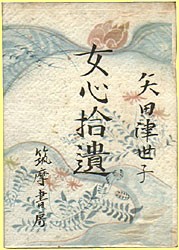 矢田津世子
女心拾遺
筑摩書房